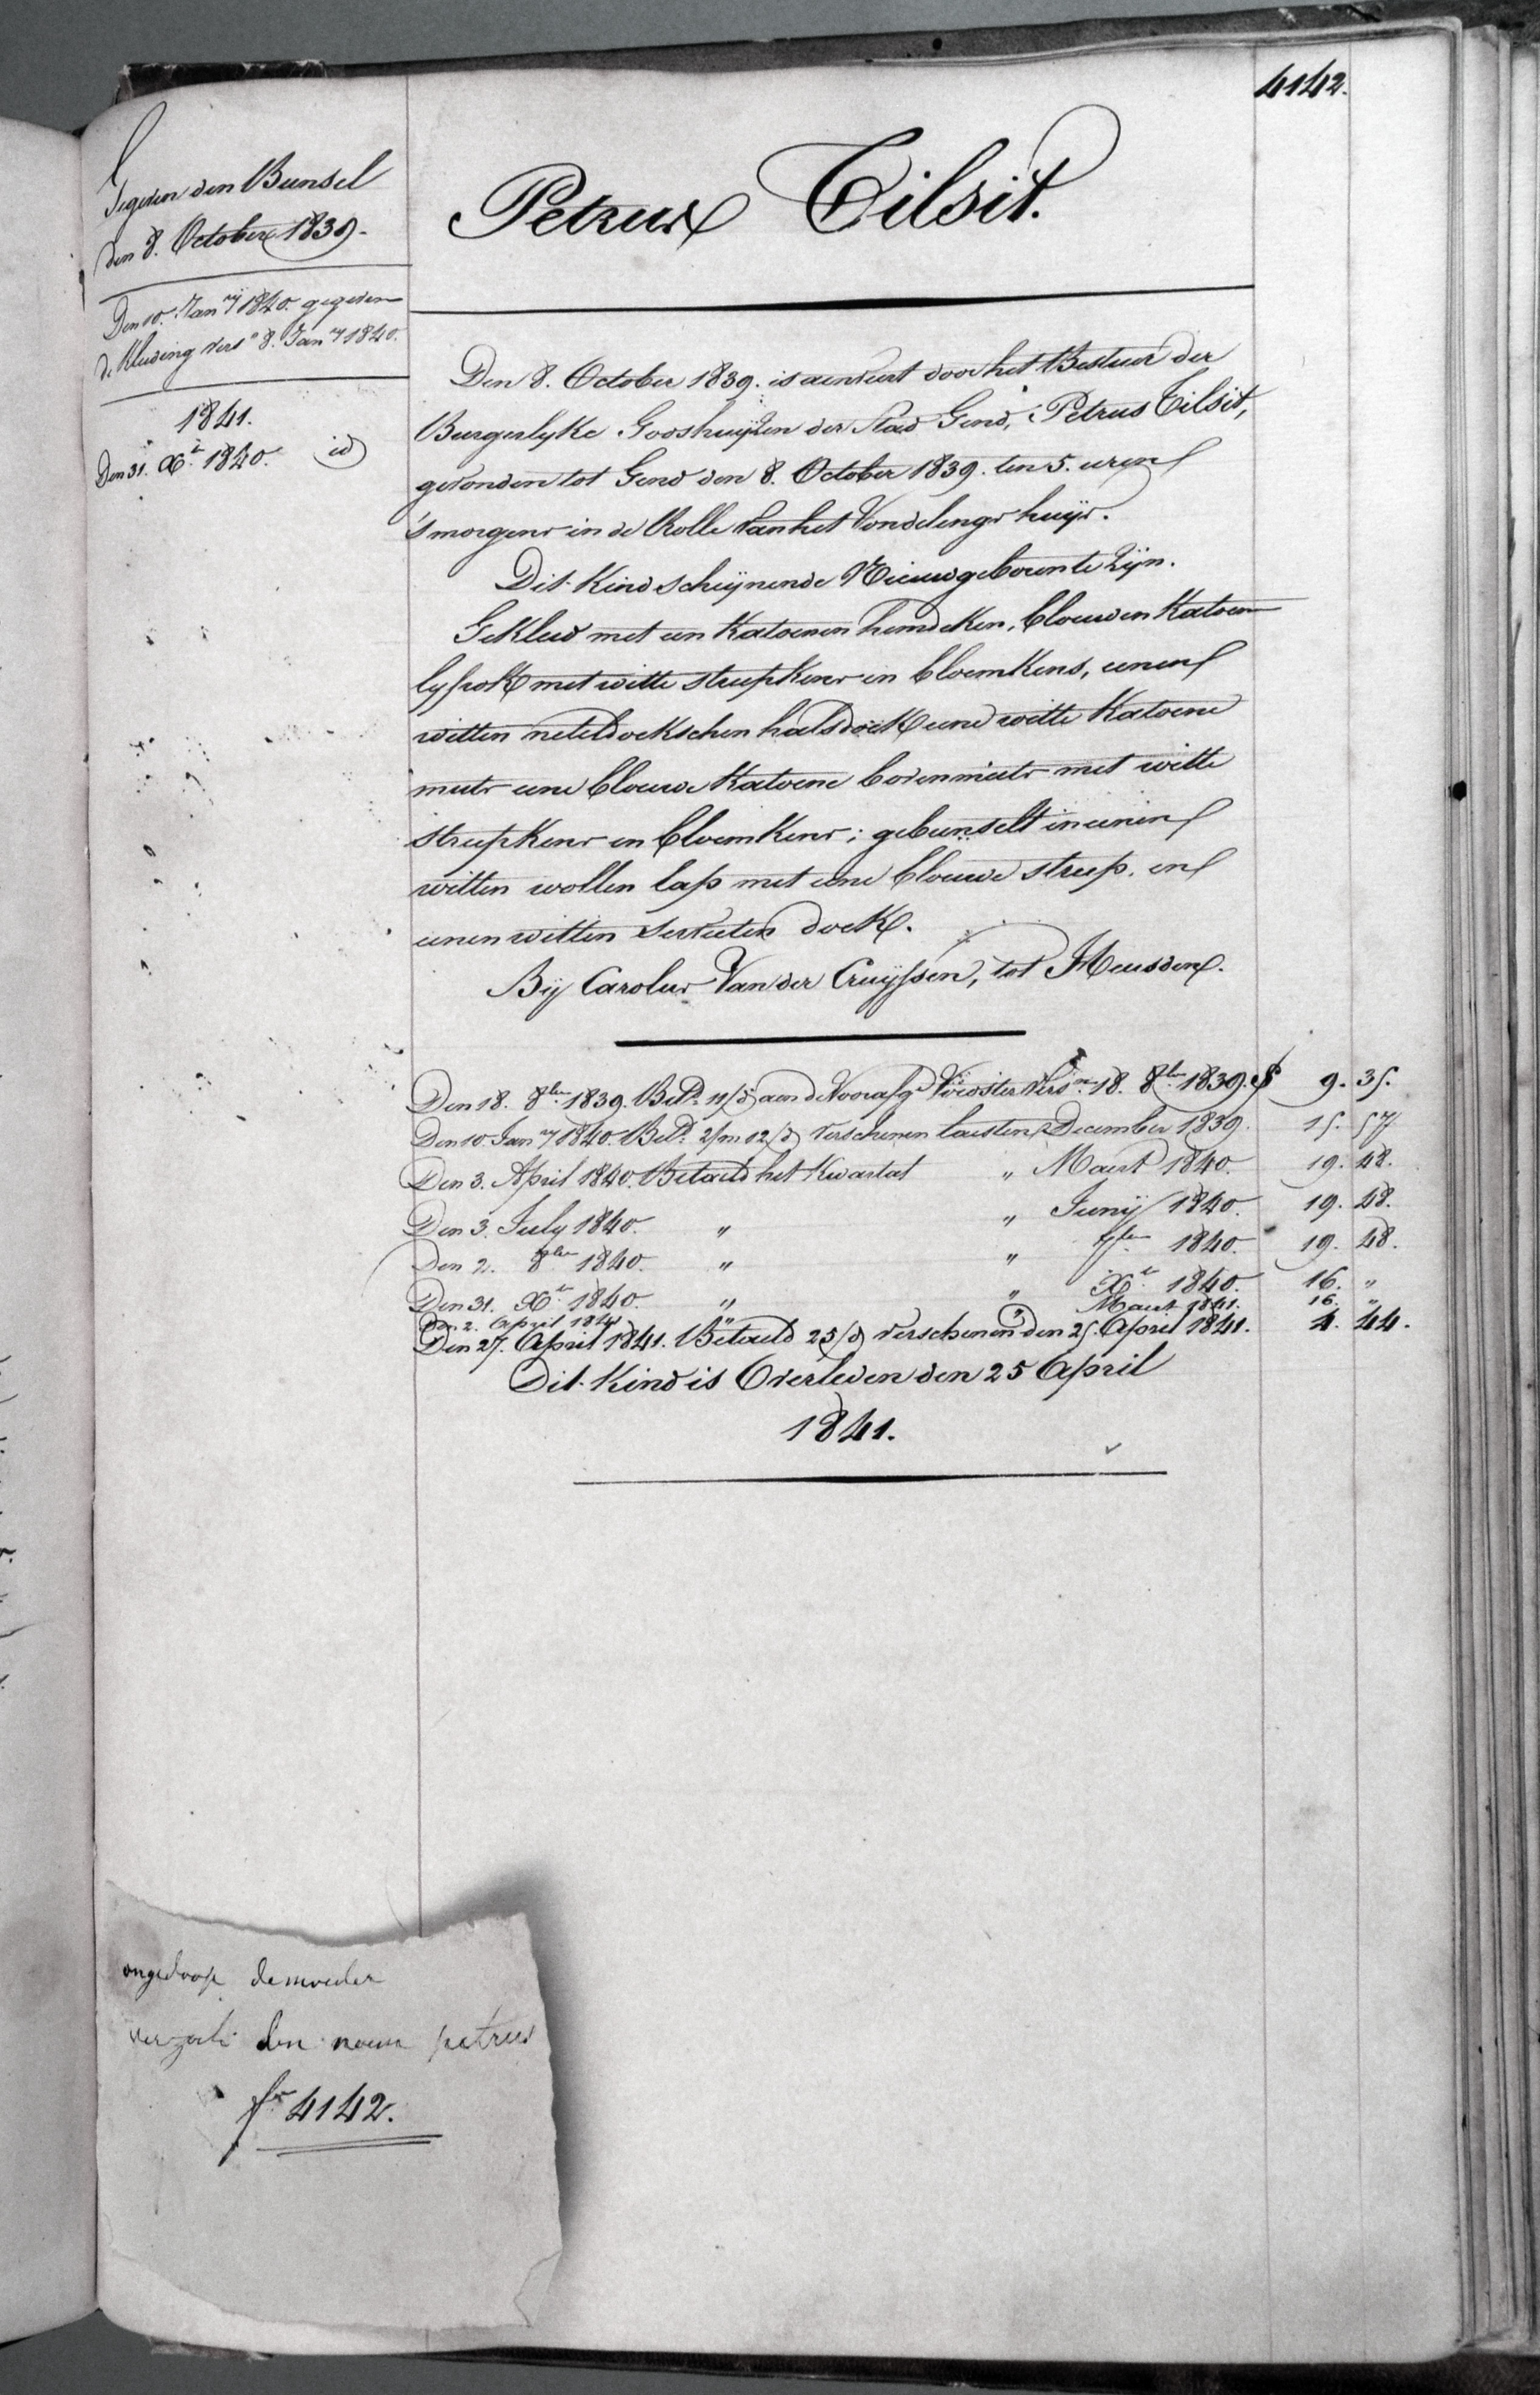 4142.
Gegeven den Bunsel
den 8. October 1839.
Den 10. Janry 1840. gegeven
de Kleeding vers.n 8. Janry 1840.
1841.
Den 31. Xb. 1840. id
Petrus Tilsit.
Den 8. October 1839. is aenveert door het Bestuer der
Burgerlyke Godshuijzen der Stad Gend, Petrus Tilsit,
gevonden tot Gend den 8. October 1839. ten 5. uren
's morgens in de Rolle van het Vondelings huijs.
Dit Kind scheijnende Nieuwgeboren te zijn.
Gekleed met een Katoenen hemdeken, blouwen Katoen
lyfrok met witte streepkens en bloemkens, eenen
witten neteldoekschen halsdoek eene witte Katoene
muts eene blouwe Katoene bovenmuts met witte
streepkens en bloemkens; gebunselt in eenen
witten wollen lap met eene blouwe streep. en
eenen witten servieten doek.
Bij Carolus Van der Cruijssen, tot Heusden.
Den 18. 8ber 1839. Betd. 11/d aen de Voorafgd Voedster Versn. 18. 8ber 1839. 9. 35.
Den 10. Janry 1840. Betd. 2/m 12/d verschenen laesten December 1839. 15. 57
Den 3. April 1840. Betaeld het Kwartal " Maert 1840. 19. 48.
Den 3. July 1840. " " Junij 1840. 19. 48.
Den 2. 8ber 1840. " " 7ber 1840. 19. 48.
Den 31. Xb. 1840. " " Xb. 1840. 16. "
Den 2. April 1841 " " Maert 1841. 16. "
Den 27. April 1841. Betaeld 25/d verschenen den 25. April 1841. 4. 44.
Dit Kind is Overleden den 25 April
1841.
ongedoopt de moeder
verzoekt den naem petrus
fo 4142.